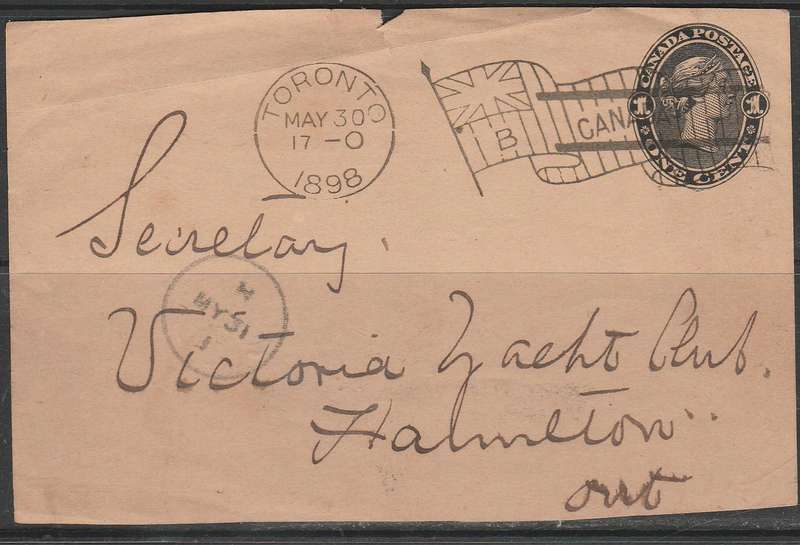 TORONTO
MAY 30
17-0
1898
B
CANADA
CANADA POSTAGE
1 1
ONE CENT
Secretary.
MY 31
Victoria Yacht Club.
Hamilton
Ont